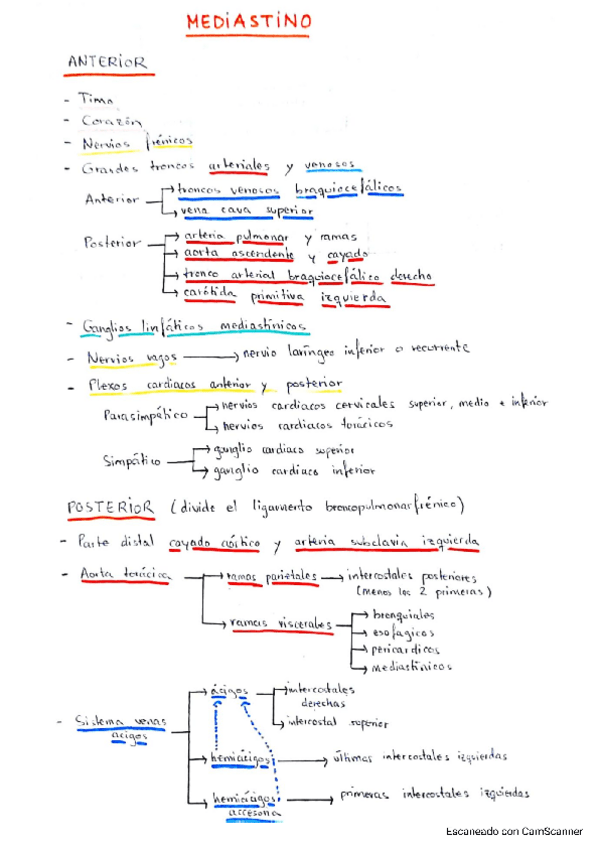 MEDIASTINO
ANTERIOR
- Timo
- Corazón
- Nervios frénicos
- Grandes troncos arteriales y venosos
Anterior → troncos venosos braquiocefálicos
→ vena cava superior
Posterior → arteria pulmonar y ramas
→ aorta ascendente y cayado
→ tronco arterial braquiocefálico derecho
→ carótida primitiva izquierda
- Ganglios linfáticos mediastínicos
- Nervios vagos → nervio laríngeo inferior o recurrente
- Plexos cardiacos anterior y posterior
Parasimpático → nervios cardiacos cervicales superior, medio e inferior
→ nervios cardiacos torácicos
Simpático → ganglio cardiaco superior
→ ganglio cardiaco inferior
POSTERIOR (divide el ligamento broncopulmonar frénico)
- Parte distal cayado aórtico y arteria subclavia izquierda
- Aorta torácica → ramas parietales → intercostales posteriores
(menos las 2 primeras)
→ ramas viscerales → bronquiales
→ esofagicos
→ pericardicos
→ mediastínicos
- Sistema venas ácigos → ácigos → intercostales derechas
→ intercostal superior
→ hemiácigos → últimas intercostales izquierdas
→ hemiácigos accesoria → primeras intercostales izquierdas
Escaneado con CamScanner